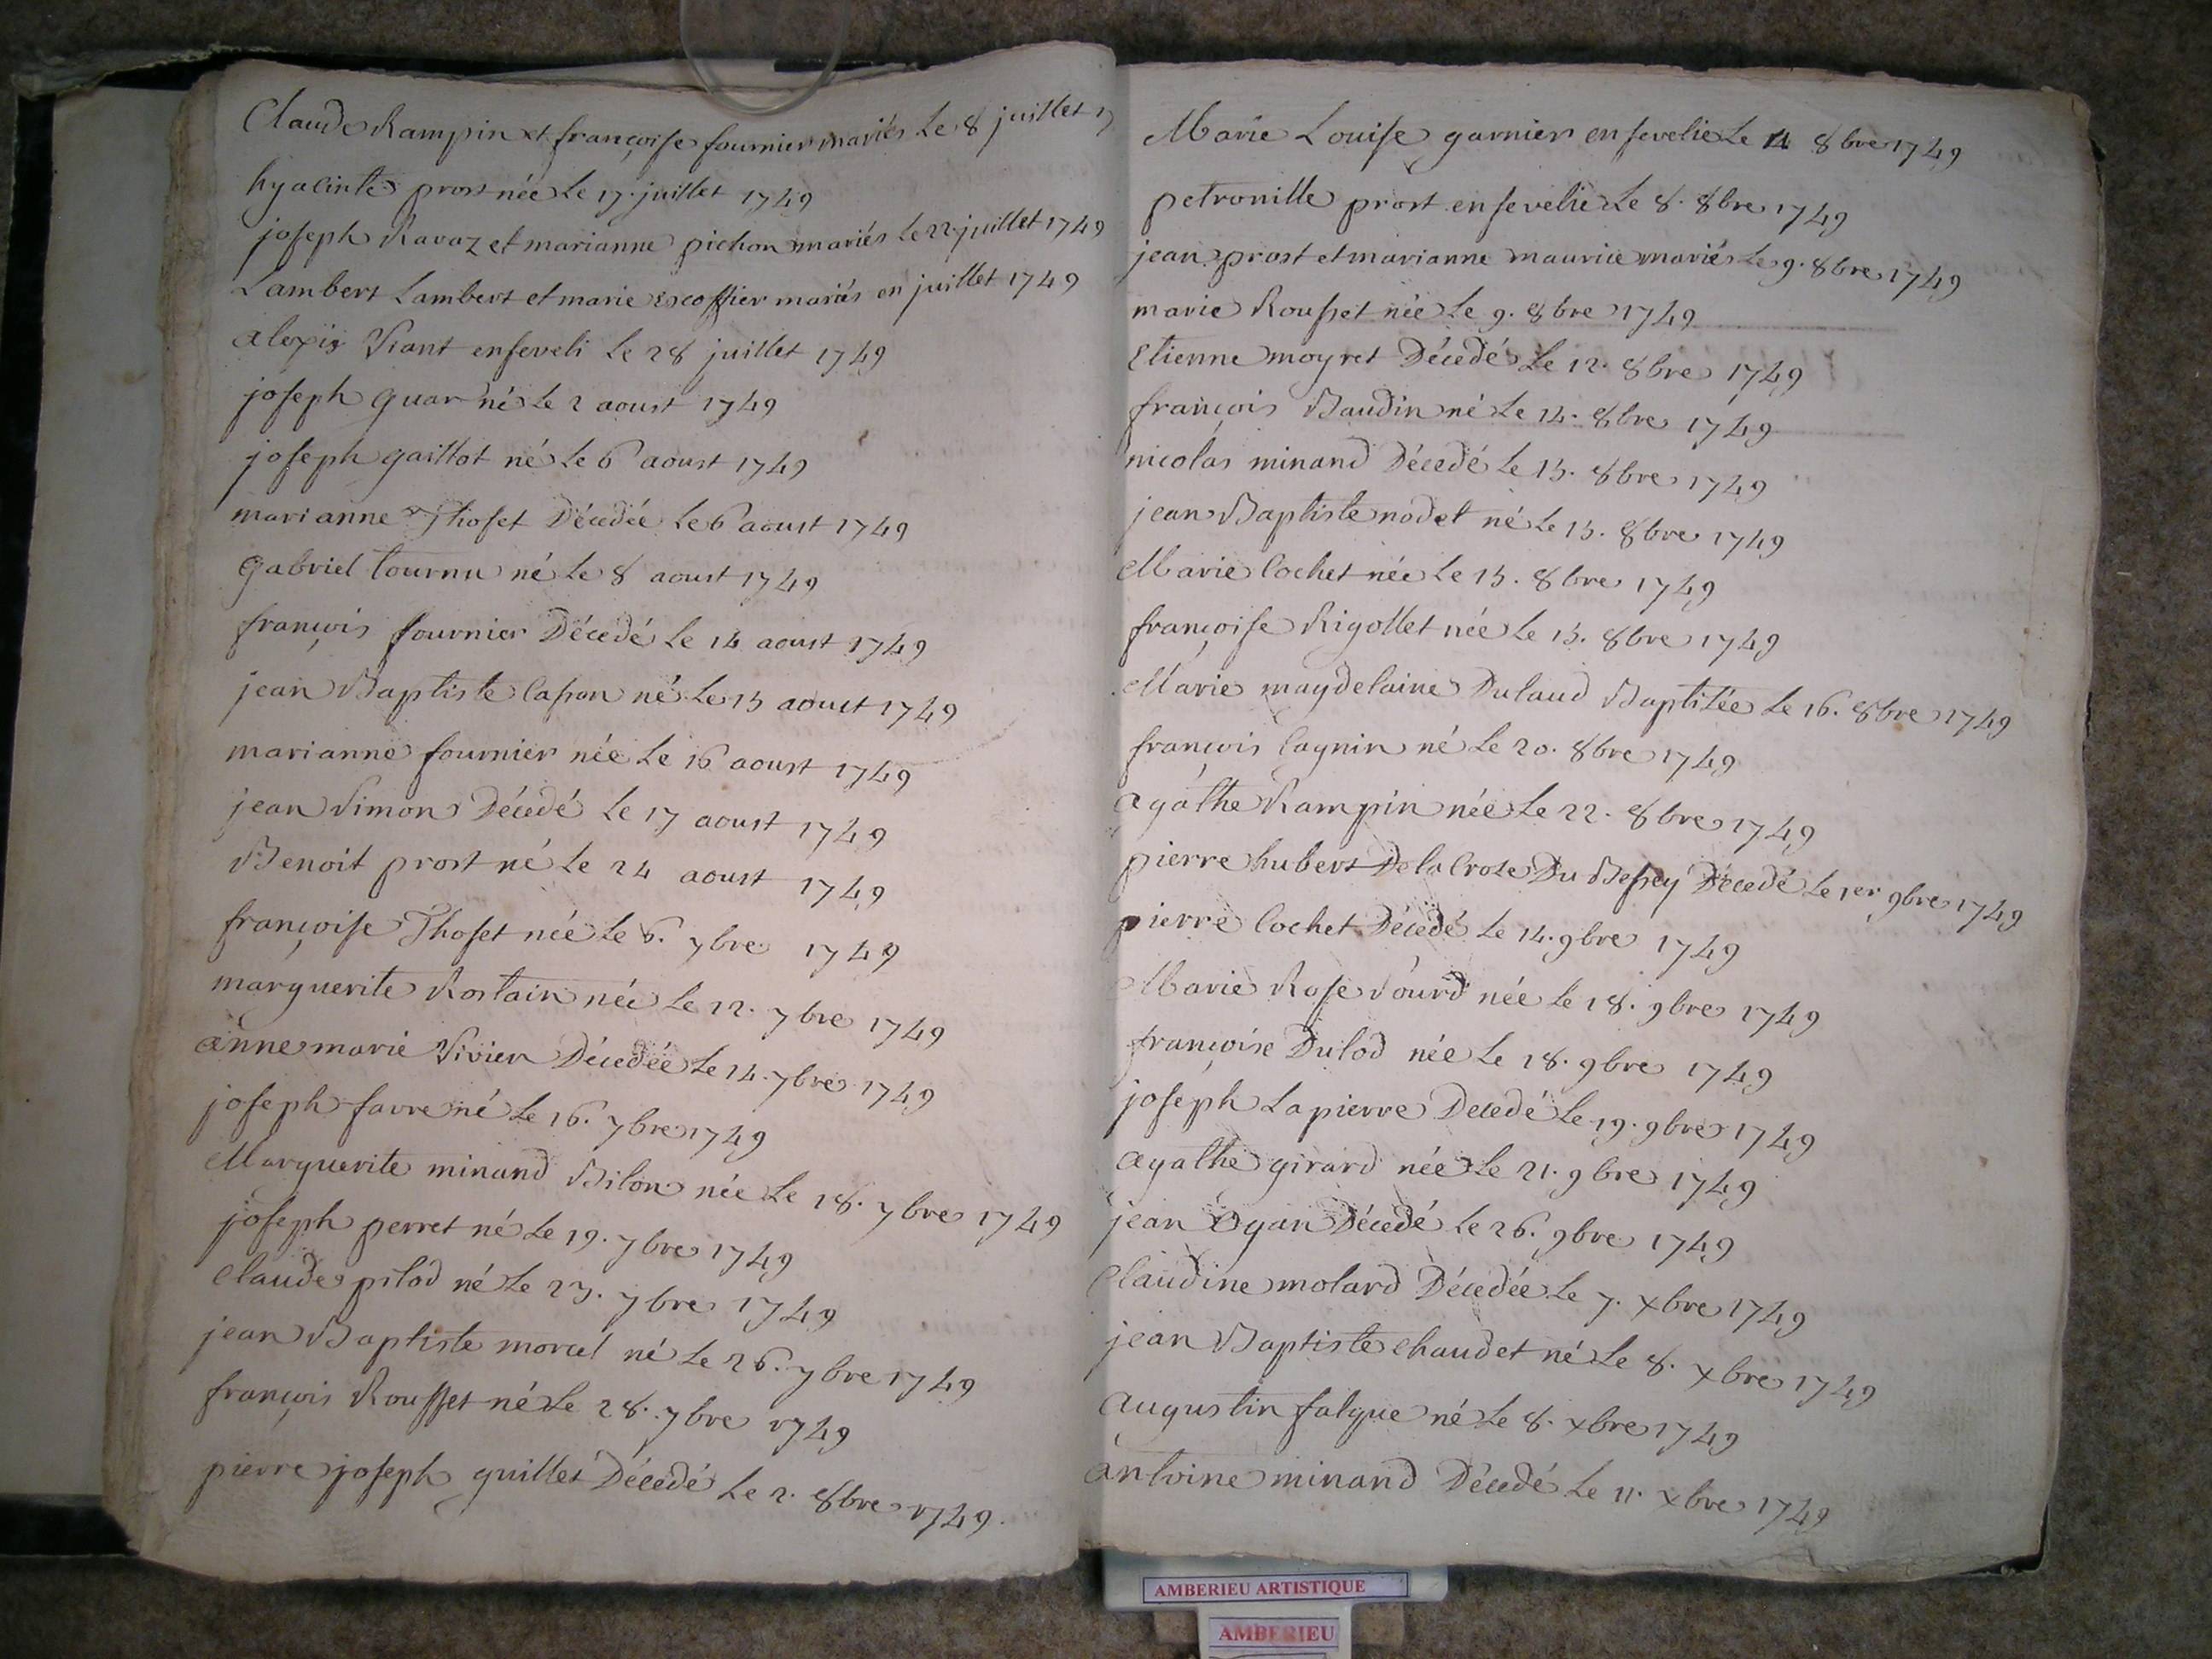 Claude Rampin et françoise fournier mariés Le 8 juillet 17
hyacinte prost née Le 17. juillet 1749
joseph Ravaz et marianne pichon mariés Le 22 juillet 1749
Lambert Lambert et marie escoffier mariés en juillet 1749
alexis Viant enseveli Le 28 juillet 1749
joseph guar né Le 2 aoust 1749
joseph gaillot né Le 6 aoust 1749
marianne Thoset Décedée Le 6 aoust 1749
gabriel tournu né Le 8 aoust 1749
françois fournier Décedé Le 14 aoust 1749
jean Baptiste Casson né Le 15 aoust 1749
marianne fournier née Le 16 aoust 1749
jean Simon Décedé Le 17 aoust 1749
Benoit prost né Le 24 aoust 1749
françoise Thoset née Le 6. 7bre 1749
marguerite Rostain née Le 12. 7bre 1749
anne marie Vivier Décedée Le 14. 7bre 1749
joseph favre né Le 16. 7bre 1749
Marguerite minand Bilon née Le 18. 7bre 1749
joseph perret né Le 19. 7bre 1749
Claude pilod né Le 23. 7bre 1749
jean Baptiste morcel né Le 26. 7bre 1749
françois Rousset né Le 28. 7bre 1749
pierre joseph guillet Décedé Le 2. 8bre 1749.
Marie Louise garnier ensevelie Le 8bre 1749
petronille prost ensevelie Le 8. 8bre 1749
jean prost et marianne maurice mariés Le 9. 8bre 1749
marie Rousset née Le 9. 8bre 1749
Etienne moyret Décedé Le 12. 8bre 1749
françois Baudin né Le 14. 8bre 1749
nicolas minand Décedé Le 15. 8bre 1749
jean Baptiste nodet né Le 15. 8bre 1749
Marie Cochet née Le 15. 8bre 1749
françoise Rigollet née Le 15. 8bre 1749
Marie magdelaine Dulaud Baptisée Le 16. 8bre 1749
françois Cagnin né Le 20. 8bre 1749
agathe Rampin née Le 22. 8bre 1749
pierre hubert De la Croze Du Bessey Décedé Le 1er 9bre 1749
pierre Cochet Décedé Le 14. 9bre 1749
Marie Rose Sourd née Le 18. 9bre 1749
françoise Dulod née Le 18. 9bre 1749
joseph Lapierre Decedé Le 19. 9bre 1749
agathe girard née Le 21. 9bre 1749
jean Ogan Décedé Le 26. 9bre 1749
Claudine molard Décedée Le 7. xbre 1749
jean Baptiste Chaudet né Le 8. xbre 1749
augustin falque né Le 8. xbre 1749
antoine minand Décedé Le 11. xbre 1749
AMBERIEU ARTISTIQUE
AMBERIEU